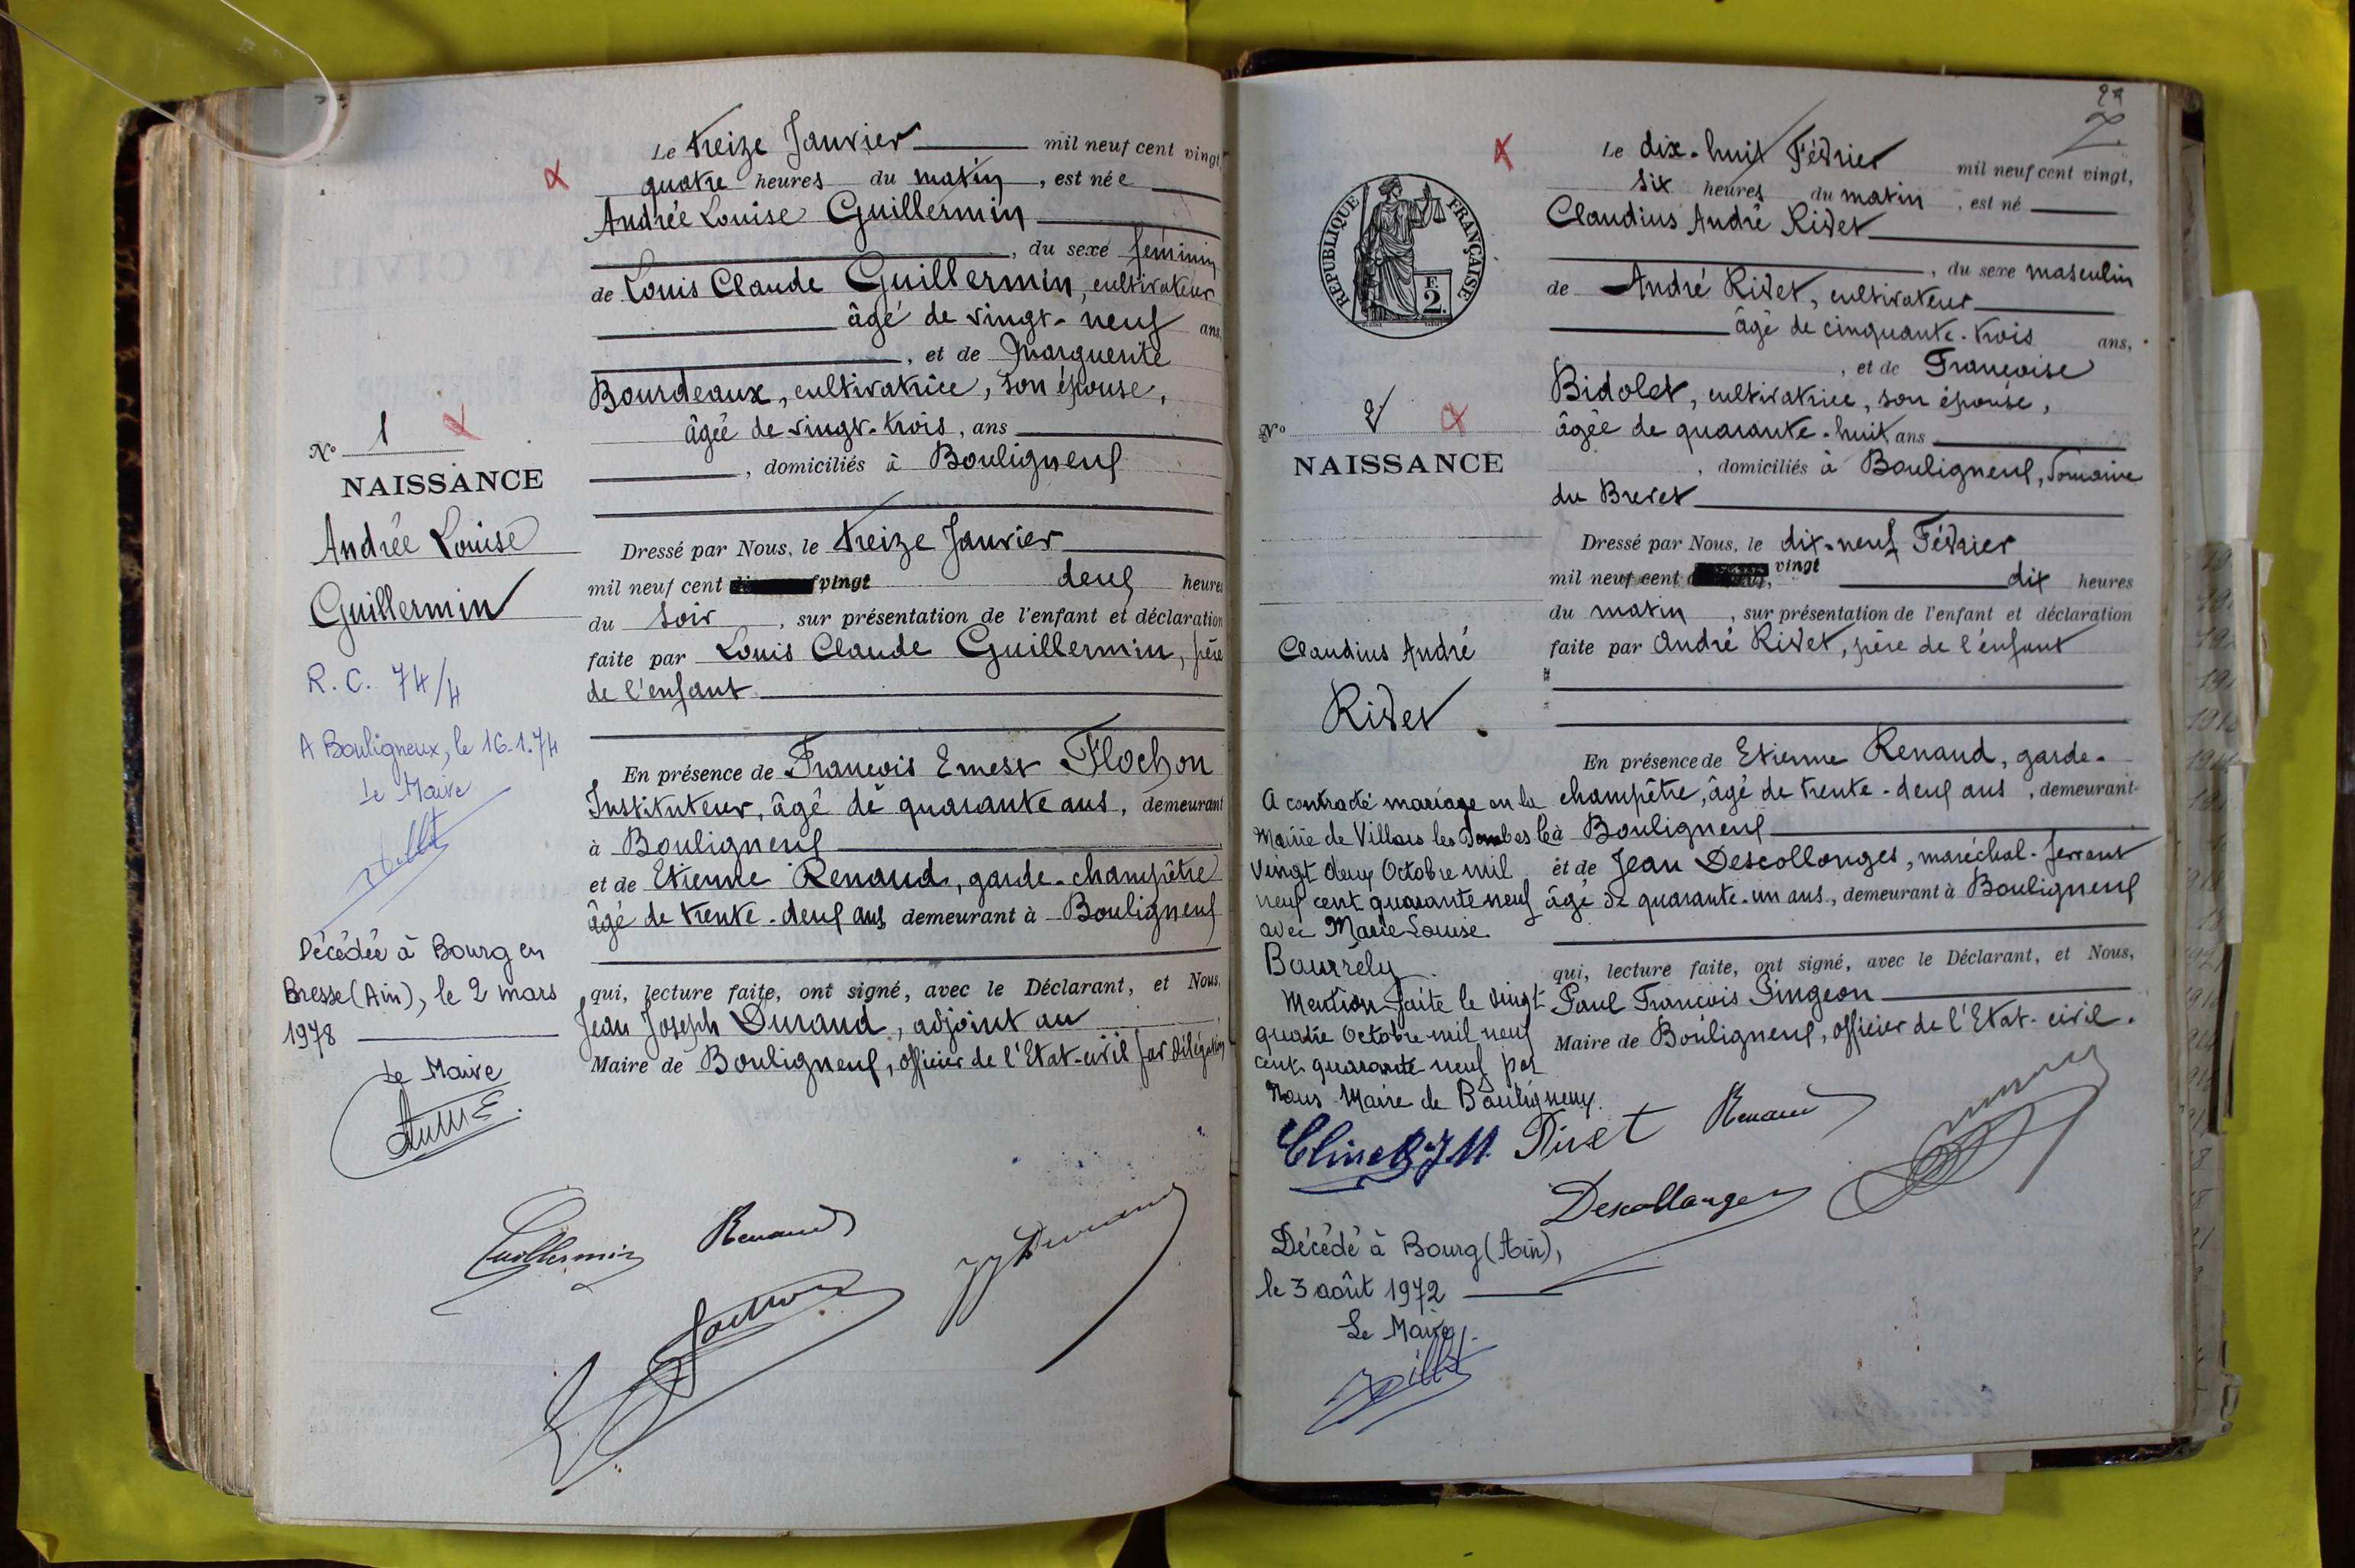 Le treize Janvier mil neuf cent vingt
quatre heures du matin, est née
Andrée Louise Guillermin
, du sexe féminin
de Louis Claude Guillermin, cultivateur
âgé de vingt-neuf ans,
, et de Marguerite
Bourdeaux, cultivatrice, son épouse,
âgée de vingt-trois, ans
, domiciliés à Bouligneux
Dressé par Nous, le treize Janvier
mil neuf cent vingt deux heures
du soir, sur présentation de l'enfant et déclaration
faite par Louis Claude Guillermin, père
de l'enfant
En présence de François Ernest Flochon
Instituteur, âgé de quarante ans, demeurant
à Bouligneux
et de Etienne Renaud, garde-champêtre
âgé de trente-deux ans demeurant à Bouligneux
qui, lecture faite, ont signé, avec le Déclarant, et Nous,
Jean Joseph Durand, adjoint au
Maire de Bouligneux, officier de l'Etat-civil par délégation
N° 1
NAISSANCE
Andrée Louise
Guillermin
R.C. 74/4
A Bouligneux, le 16.1.74
Le Maire
Décédée à Bourg en
Bresse (Ain), le 2 mars
1978
Le Maire
Guillermin
Renaud
JJ Durand
2
Le dix-huit Février mil neuf cent vingt,
six heures du matin, est né
Claudius André Rivet
, du sexe masculin
de André Rivet, cultivateur
âgé de cinquante-trois ans,
, et de Françoise
Bidolet, cultivatrice, son épouse,
âgée de quarante-huit ans
, domiciliés à Bouligneux, Domaine
du Brevet
Dressé par Nous, le dix-neuf Février
mil neuf cent vingt dix heures
du matin, sur présentation de l'enfant et déclaration
faite par André Rivet, père de l'enfant
En présence de Etienne Renaud, garde-
champêtre, âgé de trente-deux ans, demeurant
à Bouligneux
et de Jean Descollonges, maréchal-ferrant
âgé de quarante-un ans, demeurant à Bouligneux
qui, lecture faite, ont signé, avec le Déclarant, et Nous,
Paul François Pingeon
Maire de Bouligneux, officier de l'Etat-civil.
RÉPUBLIQUE FRANÇAISE
F.
2.
N° 2
NAISSANCE
Claudius André
Rivet
A contracté mariage en la
Mairie de Villars les Dombes le
vingt deux Octobre mil
neuf cent quarante neuf
avec Marie Louise
Bourrely.
Mention faite le vingt
quatre Octobre mil neuf
cent quarante neuf par
Nous Maire de Bouligneux.
Rivet
Renaud
Descollonges
Décédé à Bourg (Ain),
le 3 août 1972
Le Maire